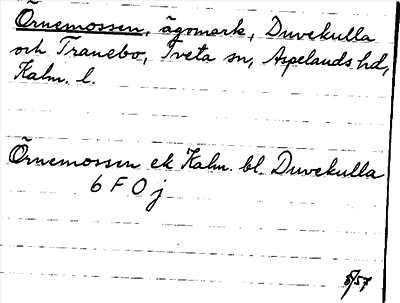 Örnemossen, ägomark, Duvekulla
och Tranebo, Tveta sn, Aspelands hd,
Kalm. l.
Örnemossen ek Kalm. bl. Duvekulla
6 F 0 j
5/57